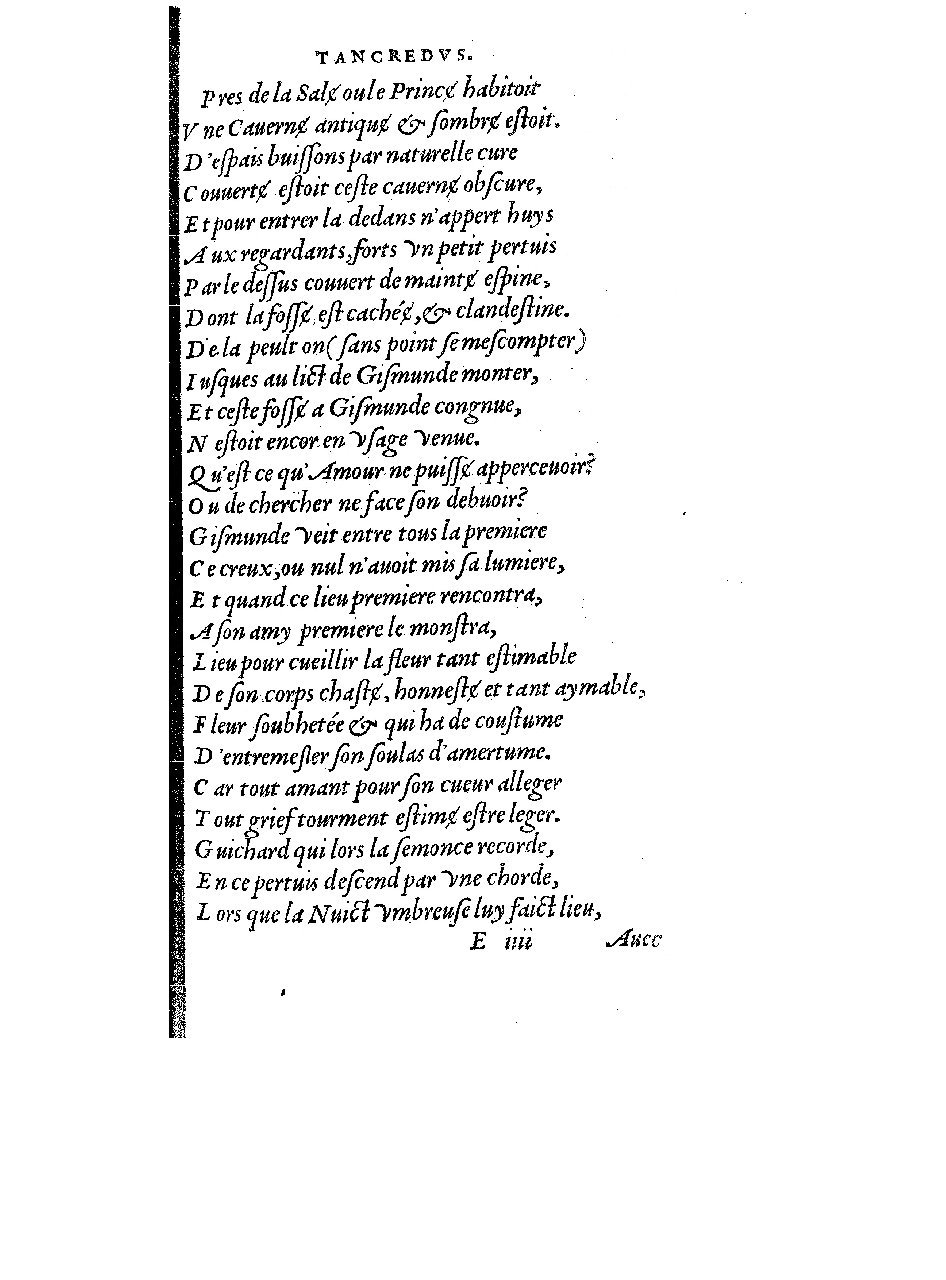 TANCREDVS.
Pres de la Salɇ ou le Princɇ habitoit
Vne Cauernɇ antiquɇ & ſombrɇ eſtoit.
D'eſpais buiſſons par naturelle cure
Couuertɇ eſtoit ceſte cauernɇ obſcure,
Et pour entrer la dedans n'appert huys
Aux regardants, forts vn petit pertuis
Par le deſſus couuert de maintɇ eſpine,
Dont la foſſɇ eſt cachéɇ, & clandeſtine.
De la peult on (ſans point ſe meſcompter)
Iuſques au lict de Giſmunde monter,
Et ceſte foſſɇ a Giſmunde congnue,
N eſtoit encor en vſage venue.
Qu'eſt ce qu'Amour ne puiſſɇ apperceuoir?
Ou de chercher ne face ſon debuoir?
Giſmunde veit entre tous la premiere
Ce creux, ou nul n'auoit mis ſa lumiere,
Et quand ce lieu premiere rencontra,
A ſon amy premiere le monſtra,
Lieu pour cueillir la fleur tant eſtimable
De ſon corps chaſtɇ, honneſtɇ et tant aymable,
Fleur ſoubhetée & qui ha de couſtume
D'entremeſler ſon ſoulas d'amertume.
Car tout amant pour ſon cueur alleger
Tout grief tourment eſtimɇ eſtre leger.
Guichard qui lors la ſemonce recorde,
En ce pertuis deſcend par vne chorde,
Lors que la Nuict vmbreuſe luy faict lieu,
E iiii Auec